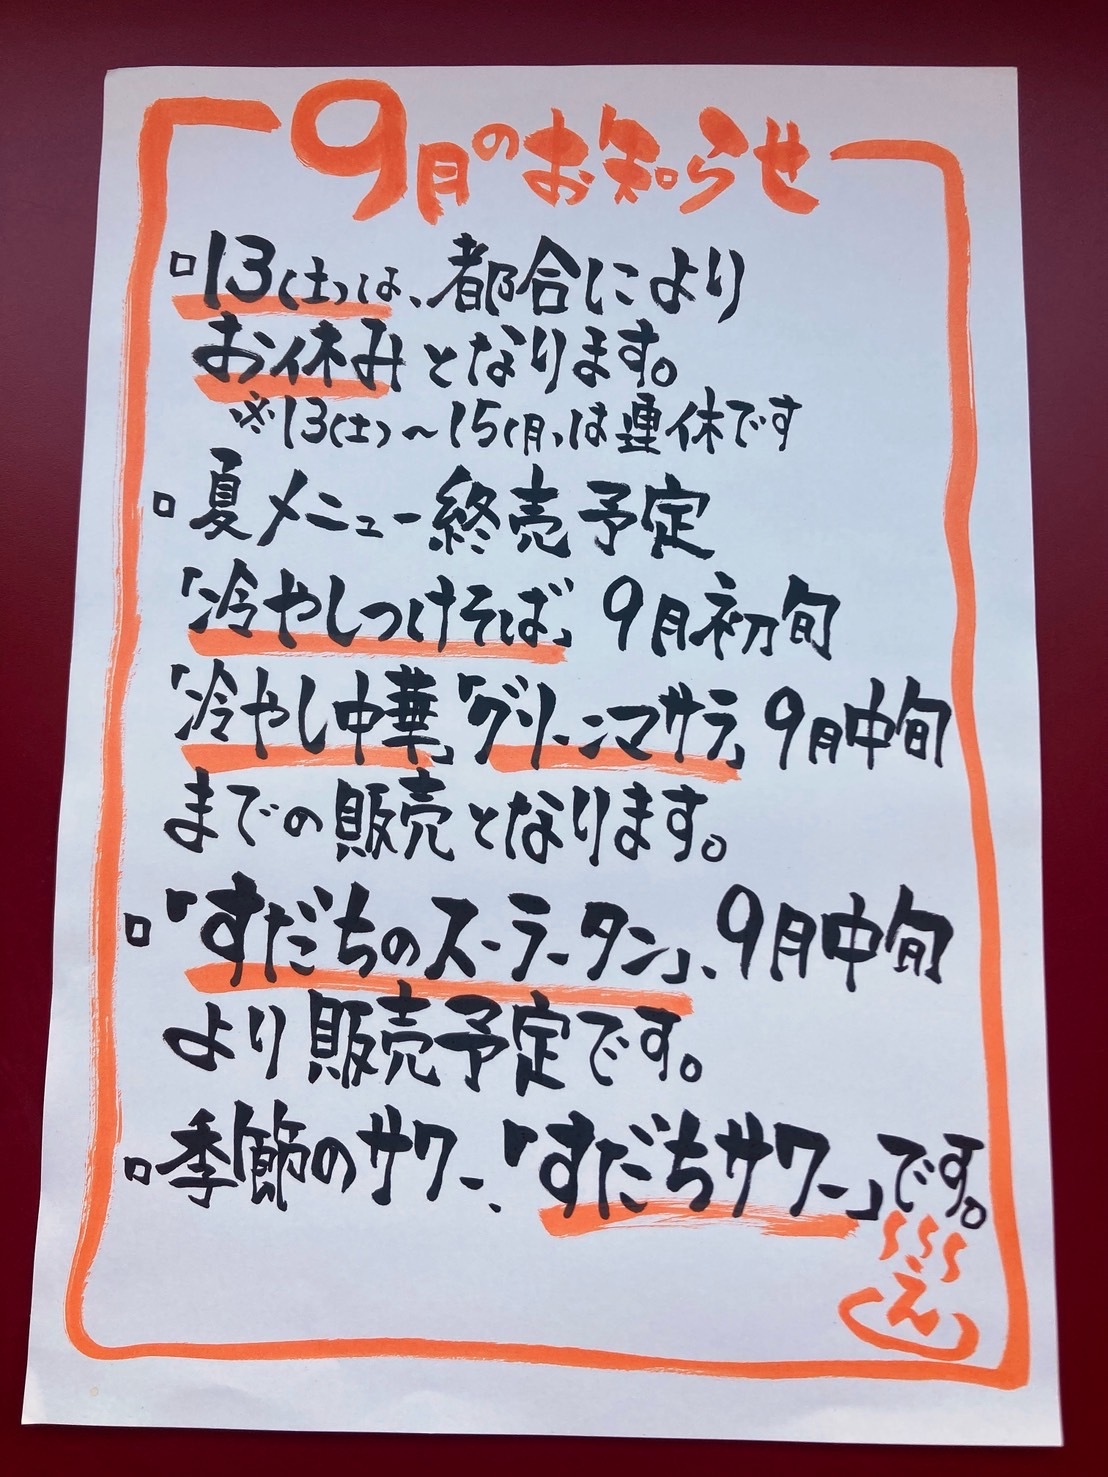 9月のお知らせ
□13(土)は、都合により
お休みとなります。
※13(土)〜15(月)は連休です
□夏メニュー終売予定
「冷やしつけそば」9月初旬
「冷やし中華」「グリーンマサラ」9月中旬
までの販売となります。
□「すだちのスーラータン」、9月中旬
より販売予定です。
□季節のサワー、「すだちサワー」です。
え